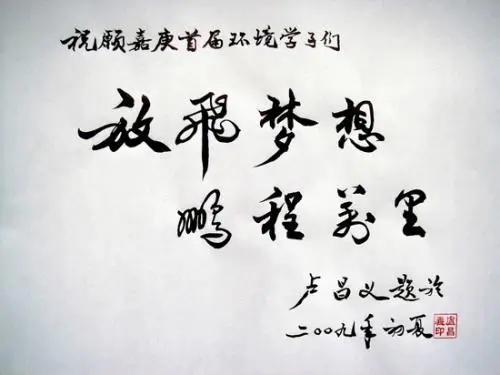 祝愿嘉庚首届环境学子们
放飛梦想
鹏程万里
卢昌义题於
二〇〇九年初夏
卢昌義印